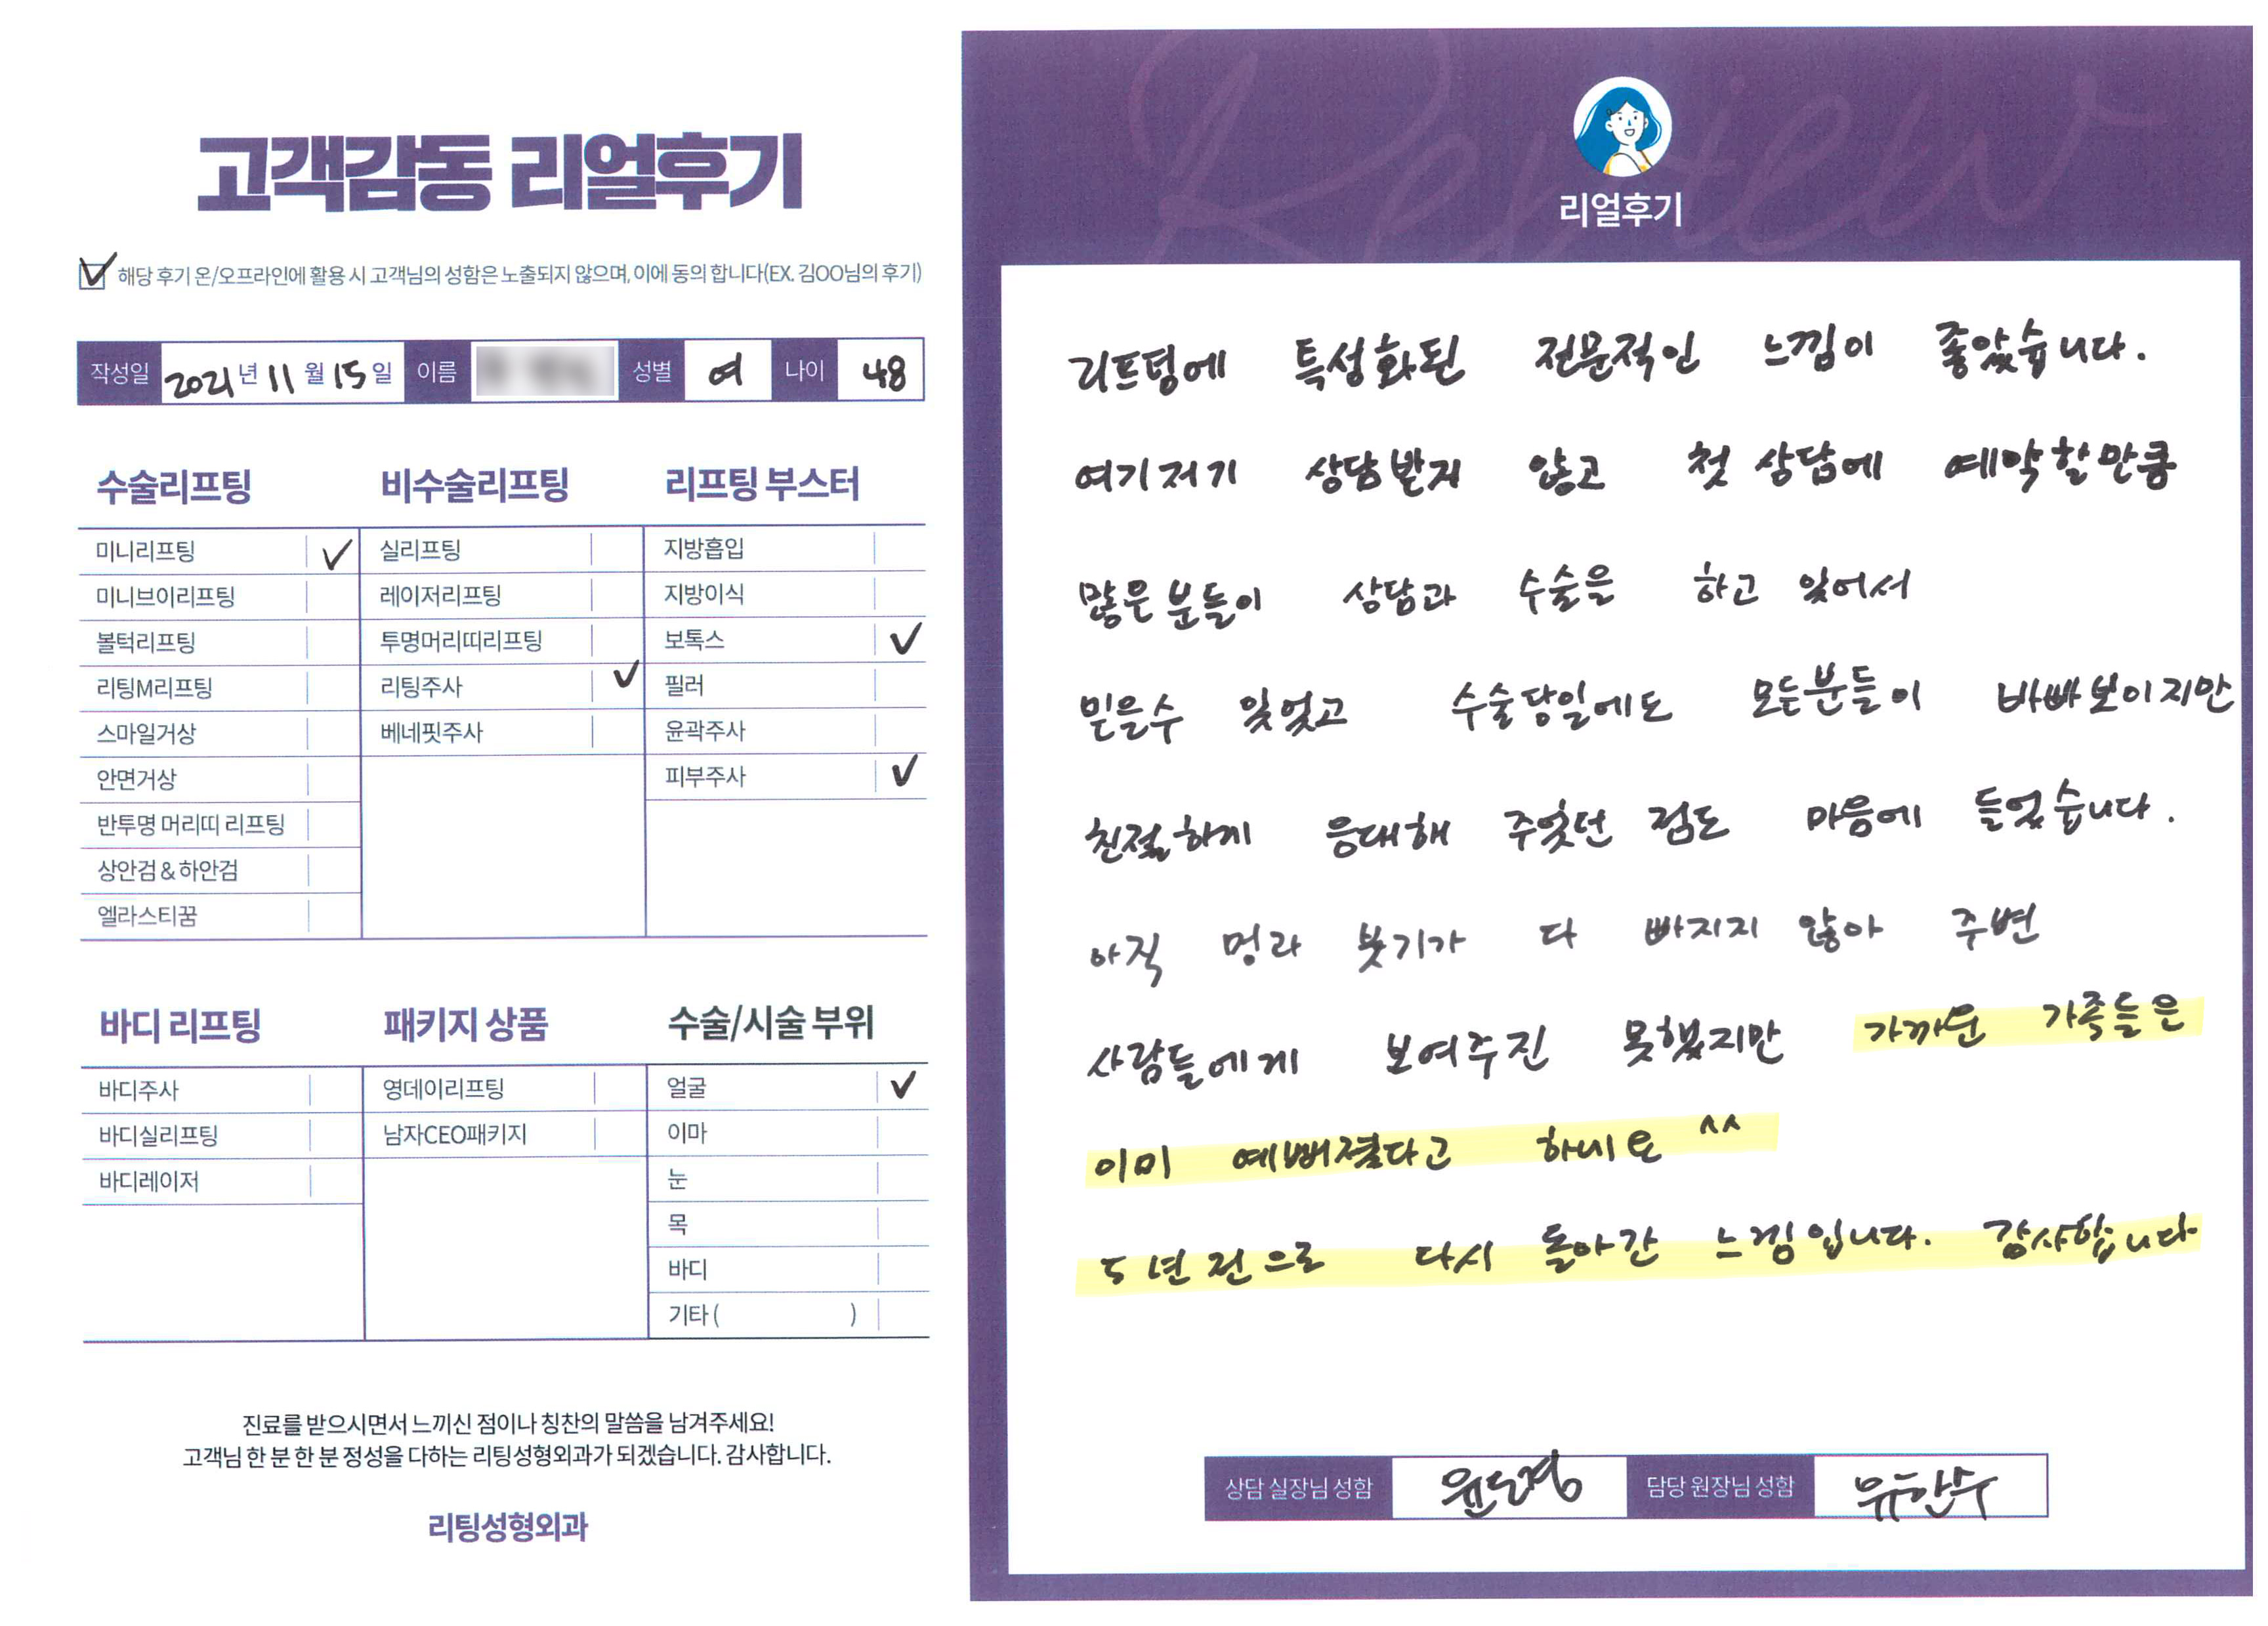 고객감동 리얼후기
✓ 해당 후기 온/오프라인에 활용 시 고객님의 성함은 노출되지 않으며, 이에 동의 합니다(EX. 김OO님의 후기)
작성일 2021년 11월 15일 이름 성별 여 나이 48
수술리프팅
미니리프팅 ✓
미니브이리프팅
볼턱리프팅
리팅M리프팅
스마일거상
안면거상
반투명 머리띠 리프팅
상안검 & 하안검
엘라스티꿈
비수술리프팅
실리프팅
레이저리프팅
투명머리띠리프팅
리팅주사 ✓
베네핏주사
리프팅 부스터
지방흡입
지방이식
보톡스 ✓
필러
윤곽주사
피부주사 ✓
바디 리프팅
바디주사
바디실리프팅
바디레이저
패키지 상품
영데이리프팅
남자CEO패키지
수술/시술 부위
얼굴 ✓
이마
눈
목
바디
기타 ( )
진료를 받으시면서 느끼신 점이나 칭찬의 말씀을 남겨주세요!
고객님 한 분 한 분 정성을 다하는 리팅성형외과가 되겠습니다. 감사합니다.
리팅성형외과
Review
리얼후기
리프팅에 특성화된 전문적인 느낌이 좋았습니다.
여기저기 상담받지 않고 첫 상담에 예약할만큼
많은분들이 상담과 수술을 하고 있어서
믿을수 있었고 수술당일에도 모든분들이 바빠보이지만
친절하게 응대해 주셨던 점도 마음에 들었습니다.
아직 멍과 붓기가 다 빠지지 않아 주변
사람들에게 보여주진 못했지만 가까운 가족들은
이미 예뻐졌다고 하네요 ^^
5년전으로 다시 돌아간 느낌입니다. 감사합니다
상담 실장님 성함 윤도경 담당 원장님 성함 유한수